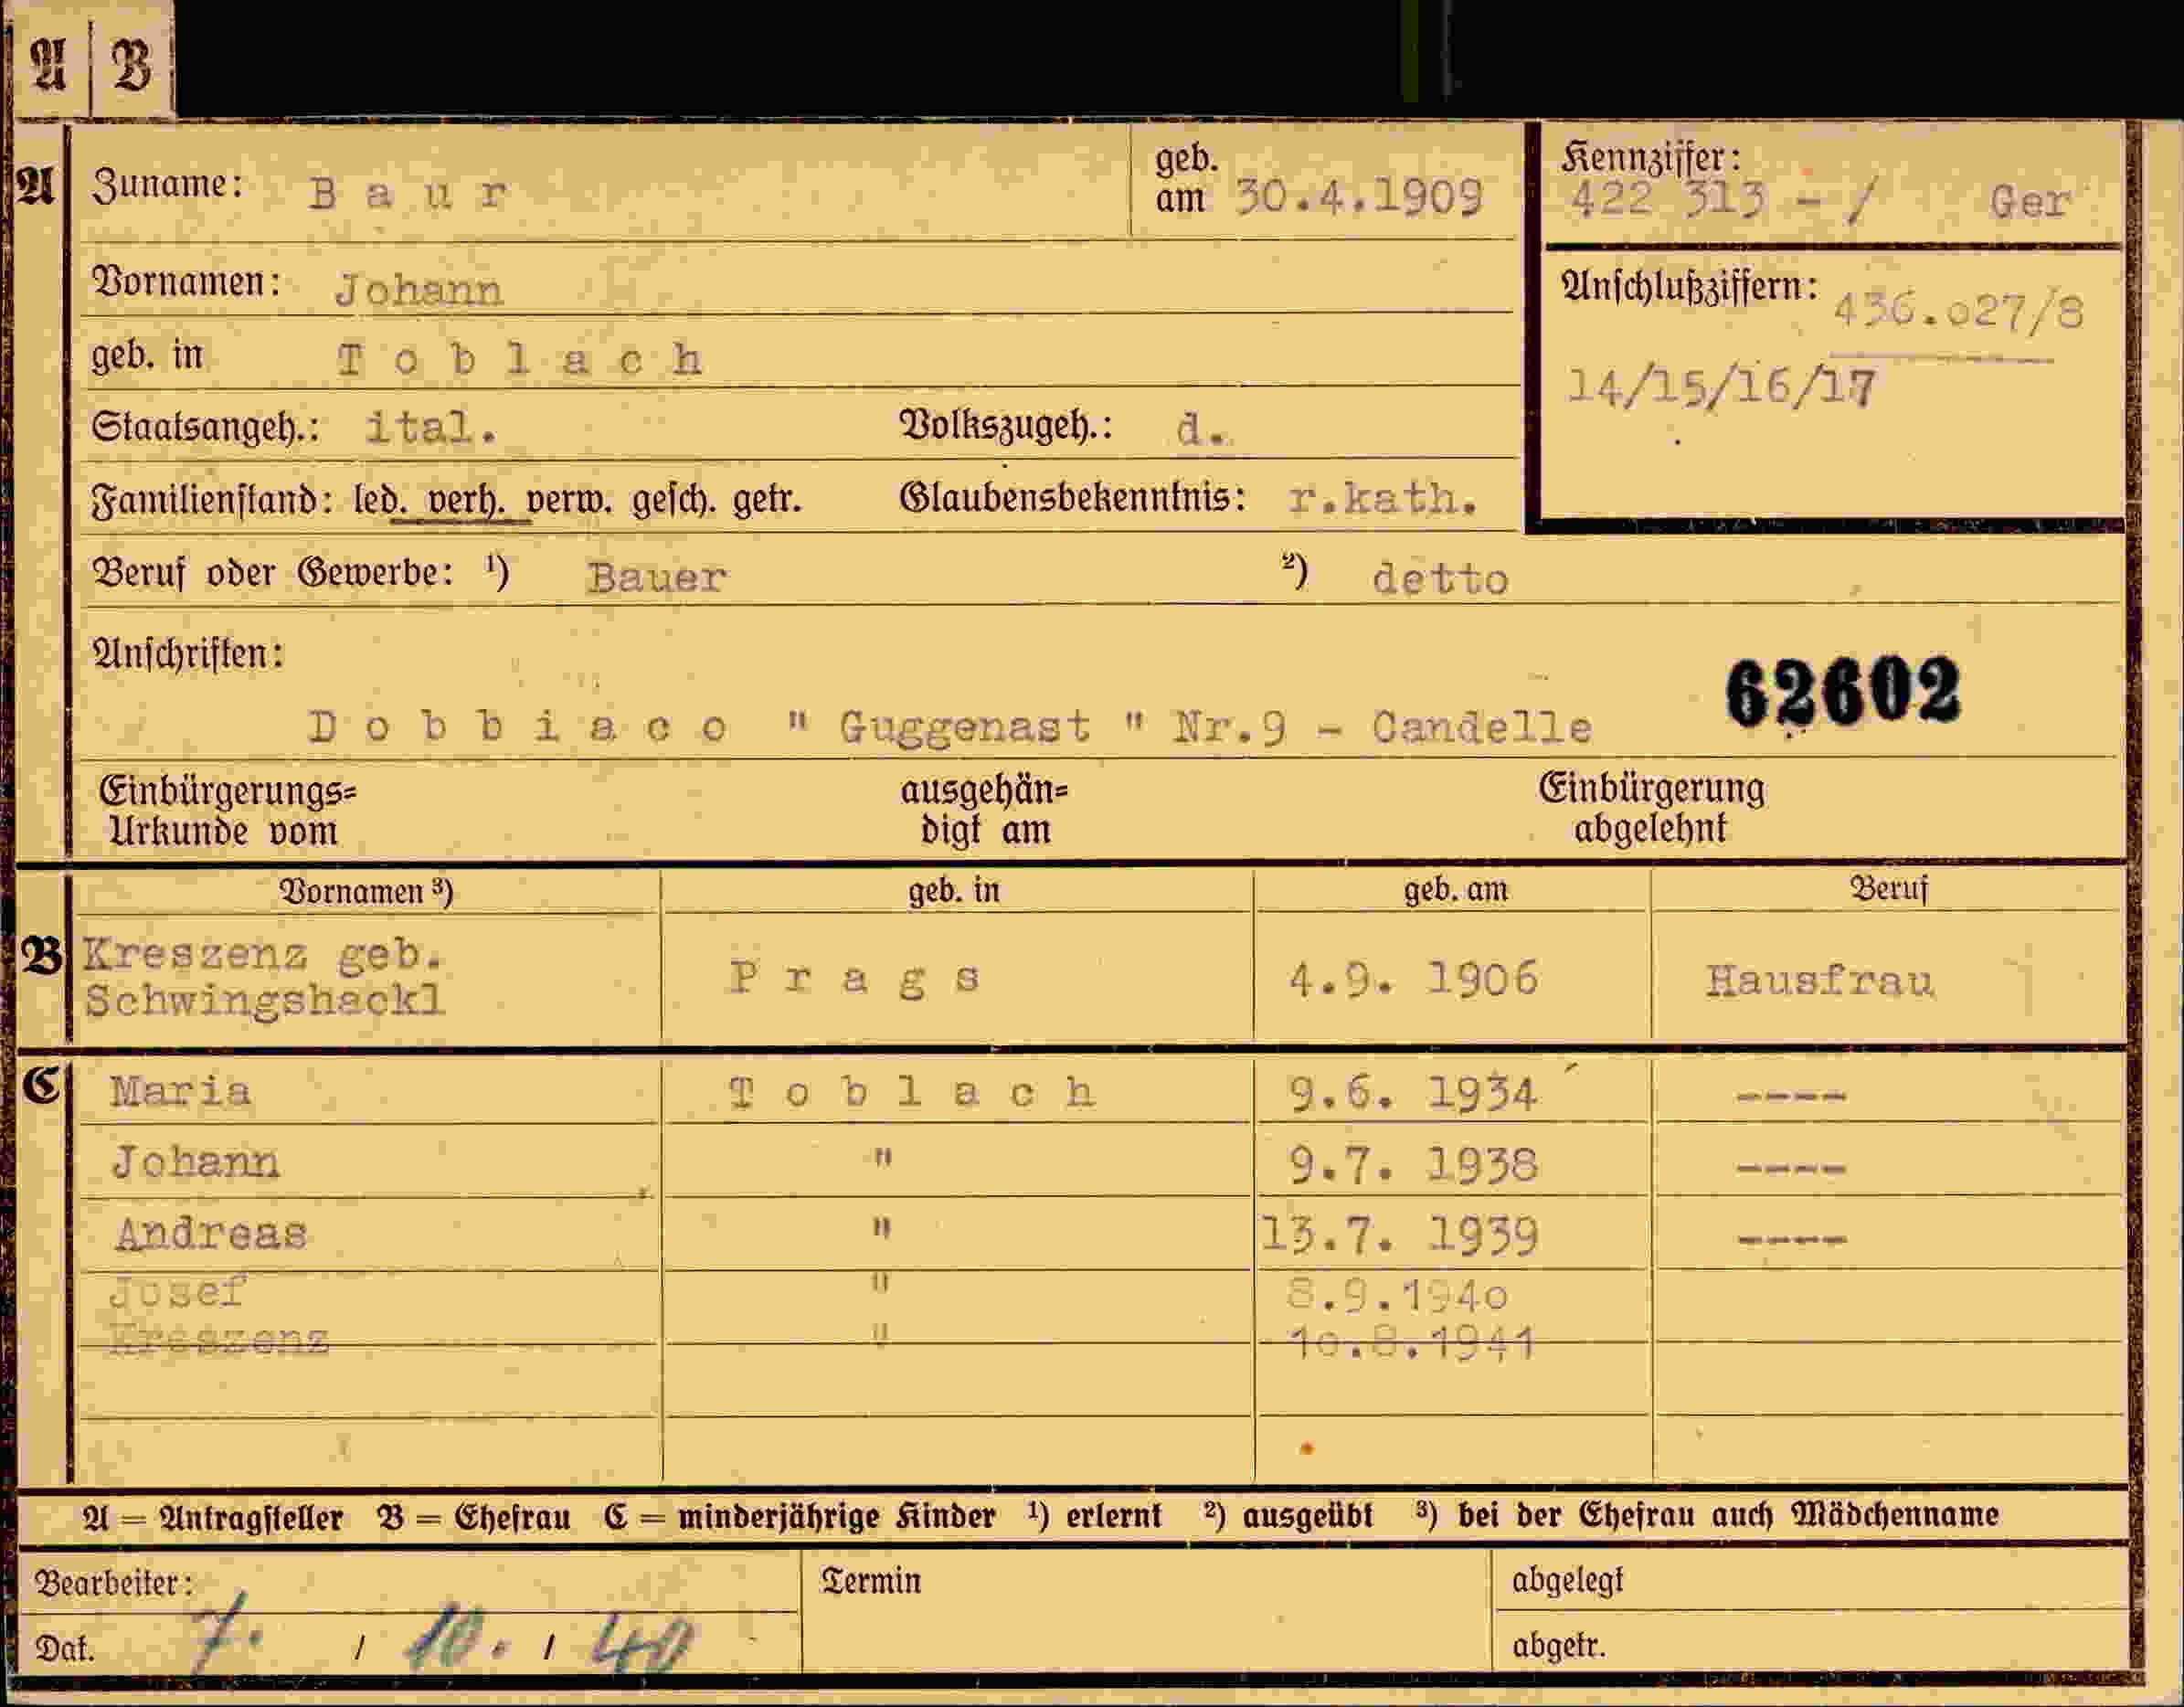 A B
A Zuname: Baur geb. am 30.4.1909 Kennziffer: 422 313 - / Ger
Vornamen: Johann Anschlußziffern: 436.027/8
geb. in Toblach 14/15/16/17
Staatsangeh.: ital. Volkszugeh.: d.
Familienstand: led. verh. verw. gesch. getr. Glaubensbekenntnis: r.kath.
Beruf oder Gewerbe: ¹) Bauer ²) detto
Anschriften: 62602
Dobbiaco " Guggenast " Nr.9 - Candelle
Einbürgerungs= ausgehän= Einbürgerung
Urkunde vom digt am abgelehnt
Vornamen ³) geb. in geb. am Beruf
B Kreszenz geb. Prags 4.9. 1906 Hausfrau
Schwingshackl
C Maria Toblach 9.6. 1934 ----
Johann " 9.7. 1938 ----
Andreas " 13.7. 1939 ----
Josef " 8.9.1940
Kreszenz " 10.8.1941
A = Antragsteller B = Ehefrau C = minderjährige Kinder ¹) erlernt ²) ausgeübt ³) bei der Ehefrau auch Mädchenname
Bearbeiter: Termin abgelegt
Dat. 7. / 10. / 40 abgetr.